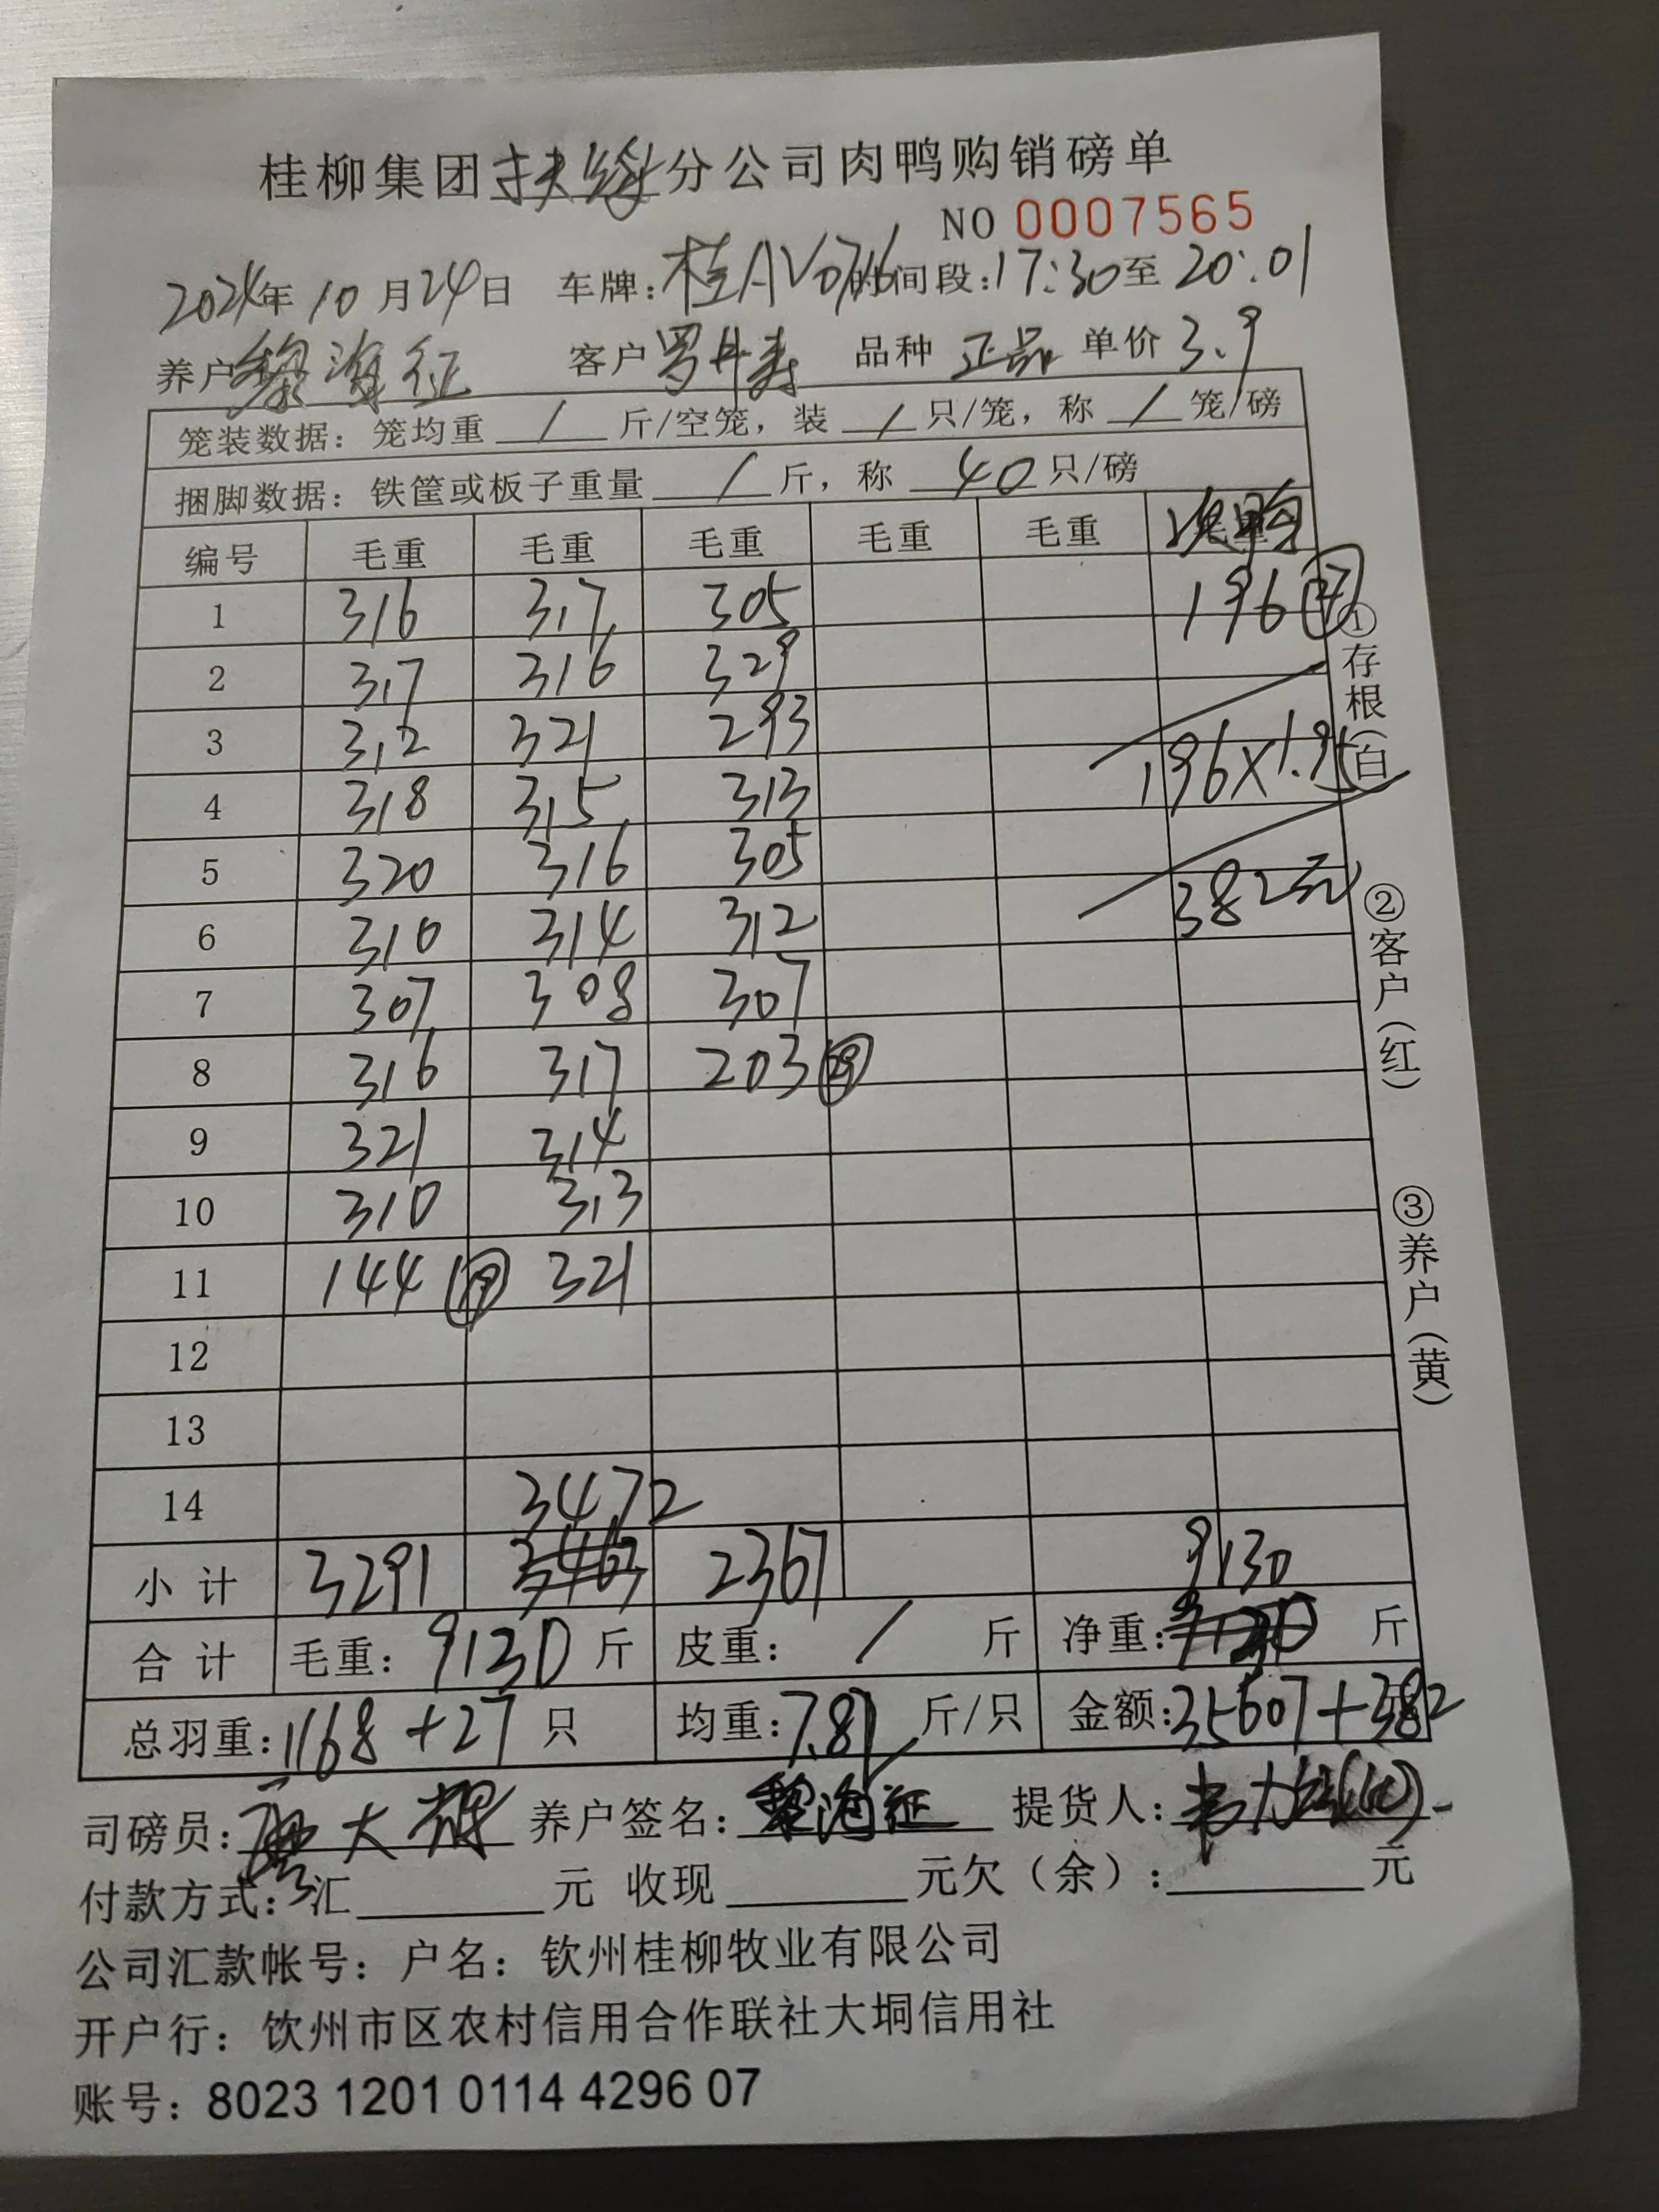 桂柳集团扶绥分公司肉鸭购销磅单
NO 0007565
2024年10月24日 车牌:桂AV0716 时间段:17:30至20:01
养户黎海征 客户罗丹寿 品种 正品 单价3.9
笼装数据: 笼均重 / 斤/空笼, 装 / 只/笼, 称 / 笼/磅
捆脚数据: 铁筐或板子重量 / 斤, 称 40 只/磅
编号 毛重 毛重 毛重 毛重 毛重 次鸭
1 316 317 305 196 27
2 317 316 329
3 312 321 293 196×1.95
4 318 315 313
5 320 316 305 382元
6 310 314 312
7 307 308 307
8 316 317 203
9 321 314
10 310 313
11 144 321
12
13
14 3472
小计 3291 3463 2367 9130
合计 毛重: 9130 斤 皮重: / 斤 净重: 斤
总羽重: 1168+27 只 均重: 7.81 斤/只 金额: 35607+382
司磅员: 大辉 养户签名: 黎海征 提货人: 韦力
付款方式: 汇 元 收现 元欠(余): 元
公司汇款帐号: 户名: 钦州桂柳牧业有限公司
开户行: 钦州市区农村信用合作联社大垌信用社
账号: 8023 1201 0114 4296 07
①存根(白)
②客户(红)
③养户(黄)